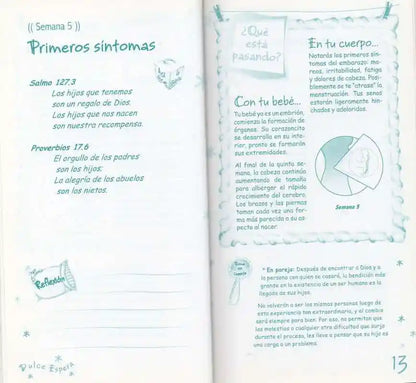 (( Semana 5 ))
Primeros síntomas
Salmo 127.3
Los hijos que tenemos
son un regalo de Dios.
Los hijos que nos nacen
son nuestra recompensa.
Proverbios 17.6
El orgullo de los padres
son los hijos;
La alegría de los abuelos
son los nietos.
Reflexión
Dulce Espera
¿Qué
está
pasando?
En tu cuerpo...
Notarás los primeros sín-
tomas del embarazo: ma-
reos, irritabilidad, fatiga
y dolores de cabeza. Posi-
blemente se te "atrase" la
menstruación. Tus senos
estarán ligeramente hin-
chados y adoloridos.
Con tu bebé...
Tu bebé ya es un embrión,
comienza la formación de
órganos. Su corazoncito
se desarrolla en su inte-
rior, pronto se formarán
sus extremidades.
Al final de la quinta se-
mana, la cabeza continúa
aumentando de tamaño
para albergar el rápido
crecimiento del cerebro.
Los brazos y las piernas
toman cada vez una for-
ma más parecida a su as-
pecto al nacer.
Semana 5
* En pareja: Después de encontrar a Dios y a
la persona con quien se casará, la bendición más
grande en la existencia de un ser humano es la
llegada de sus hijos.
No volverán a ser las mismas personas luego de
esta experiencia tan extraordinaria, y el cambio
será siempre para bien. Por eso, no permitan que
las molestias o cualquier otra dificultad que surja
durante el proceso, les hagan pensar que su hijo es
una carga o un problema.
13